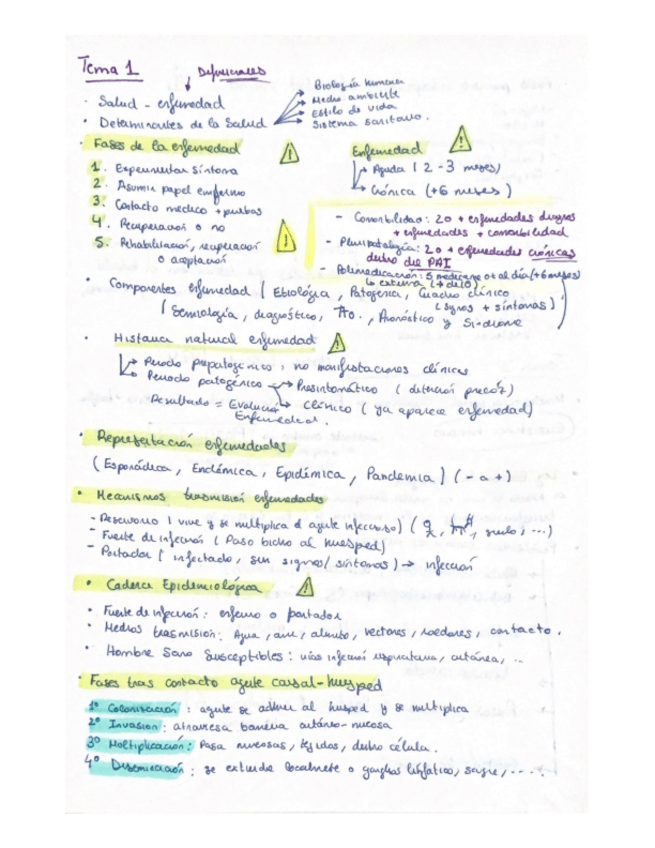 Tema 1
Definiciones
· Salud - enfermedad
· Determinantes de la Salud
Biología humana
Medio ambiente
Estilo de vida
Sistema sanitario.
· Fases de la enfermedad
1. Experimentar síntoma
2. Asumir papel enfermo
3. Contacto medico + pruebas
4. Recuperación o no
5. Rehabilitación, recuperación
o aceptación
Enfermedad
Aguda (2-3 meses)
Crónica (+6 meses)
- Comorbilidad: 2 o + enfermedades diagnos
+ enfermedades + comorbilidad
- Pluripatología: 2 o + enfermedades crónicas
dentro del PAI
- Polimedicación: 5 medicame o + al día (+6 meses)
↳ extrema (+ de 10)
· Componentes enfermedad (Etiológia, Patogenia, Cuadro clínico
(signos + síntomas)
(Semiología, diagnóstico, tto., Pronóstico y Síndrome
· Historia natural enfermedad
Periodo prepatogénico: no manifestaciones clínicas
Periodo patogénico → Presintomático (detención precoz)
Resultado = Evolución Enfermedad.
Clínico (ya aparece enfermedad)
· Representación enfermedades
(Esporádica, Endémica, Epidémica, Pandemia) (- a +)
· Mecanismos trasmisión enfermedades
- Reservorio (vive y se multiplica el agente infeccioso) ( , suelo, ...)
- Fuente de infeccion (Paso bicho al huesped)
- Portador (infectado, sin signos/síntomas) → infección
· Cadena Epidemiológica
· Fuente de infeccion: enfermo o portador
· Medios trasmision: Agua, aire, alimento, vectores, roedores, contacto.
· Hombre Sano Susceptibles: vías infección respiratoria, cutánea, ..
· Fases tras contacto agente causal-huesped
1º Colonización: agente se adhiere al huesped y se multiplica
2º Invasion: atraviesa barrera cutáneo-mucosa
3º Moltiplicación: Pasa mucosas, tejidos, dentro célula.
4º Diseminación: se extiende localmente o ganglios linfático, sangre, ....